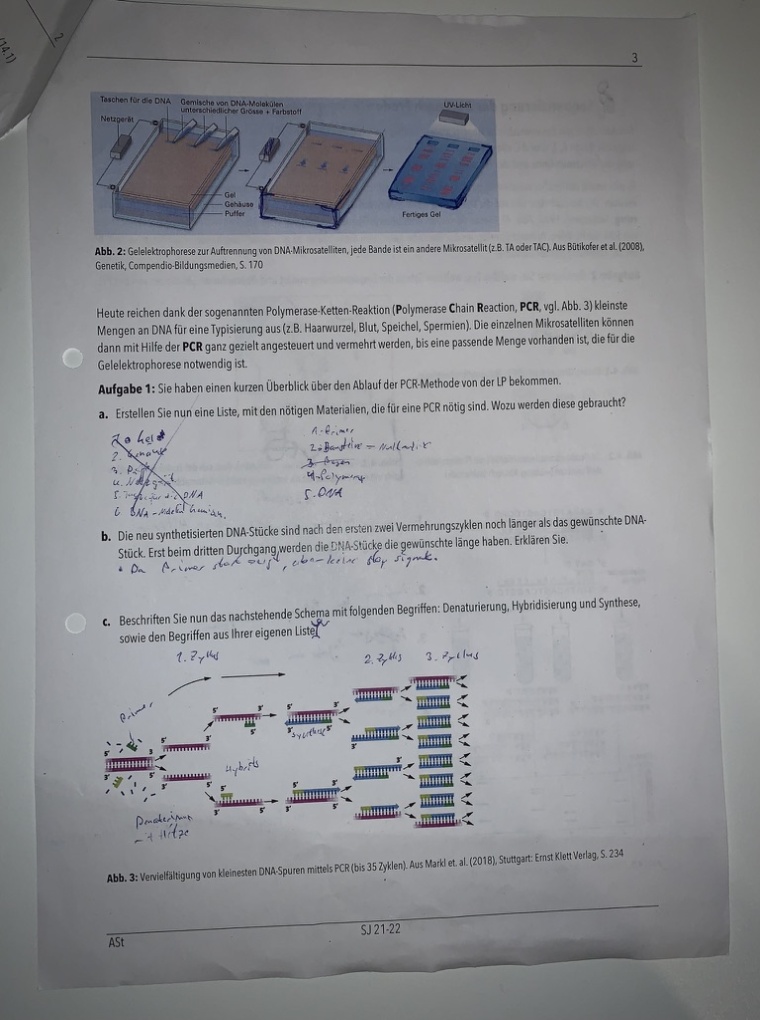 (14.1)
2
3
Taschen für die DNA
Gemische von DNA-Molekülen
unterschiedlicher Grösse + Farbstoff
UV-Licht
Netzgerät
Gel
Gehäuse
Puffer
Fertiges Gel
Abb. 2: Gelelektrophorese zur Auftrennung von DNA-Mikrosatelliten, jede Bande ist ein andere Mikrosatellit (z.B. TA oder TAC). Aus Bütikofer et al. (2008),
Genetik, Compendio-Bildungsmedien, S. 170
Heute reichen dank der sogenannten Polymerase-Ketten-Reaktion (Polymerase Chain Reaction, PCR, vgl. Abb. 3) kleinste
Mengen an DNA für eine Typisierung aus (z.B. Haarwurzel, Blut, Speichel, Spermien). Die einzelnen Mikrosatelliten können
dann mit Hilfe der PCR ganz gezielt angesteuert und vermehrt werden, bis eine passende Menge vorhanden ist, die für die
Gelelektrophorese notwendig ist.
Aufgabe 1: Sie haben einen kurzen Überblick über den Ablauf der PCR-Methode von der LP bekommen.
a. Erstellen Sie nun eine Liste, mit den nötigen Materialien, die für eine PCR nötig sind. Wozu werden diese gebraucht?
1. Primer
2. Bausteine =
3.
4.
5. DNA
2.
3.
4. Netzgerät
5. DNA
6. DNA-
b. Die neu synthetisierten DNA-Stücke sind nach den ersten zwei Vermehrungszyklen noch länger als das gewünschte DNA-
Stück. Erst beim dritten Durchgang werden die DNA-Stücke die gewünschte länge haben. Erklären Sie.
Da Primer start aber keiner stop signal.
c. Beschriften Sie nun das nachstehende Schema mit folgenden Begriffen: Denaturierung, Hybridisierung und Synthese,
sowie den Begriffen aus Ihrer eigenen Liste
1. Zyklus
2. Zyklus
3. Zyklus
Primer
5' 3'
5' 3'
5'
5' 3'
3' 5'
Synthese
3'
5' 3
3' 5'
3' 5'
5'
3' 5'
5' 3'
3' 5'
3'
5'
mit Hitze
Abb. 3: Vervielfältigung von kleinesten DNA-Spuren mittels PCR (bis 35 Zyklen). Aus Markl et. al. (2018), Stuttgart: Ernst Klett Verlag, S. 234
ASt
SJ 21-22